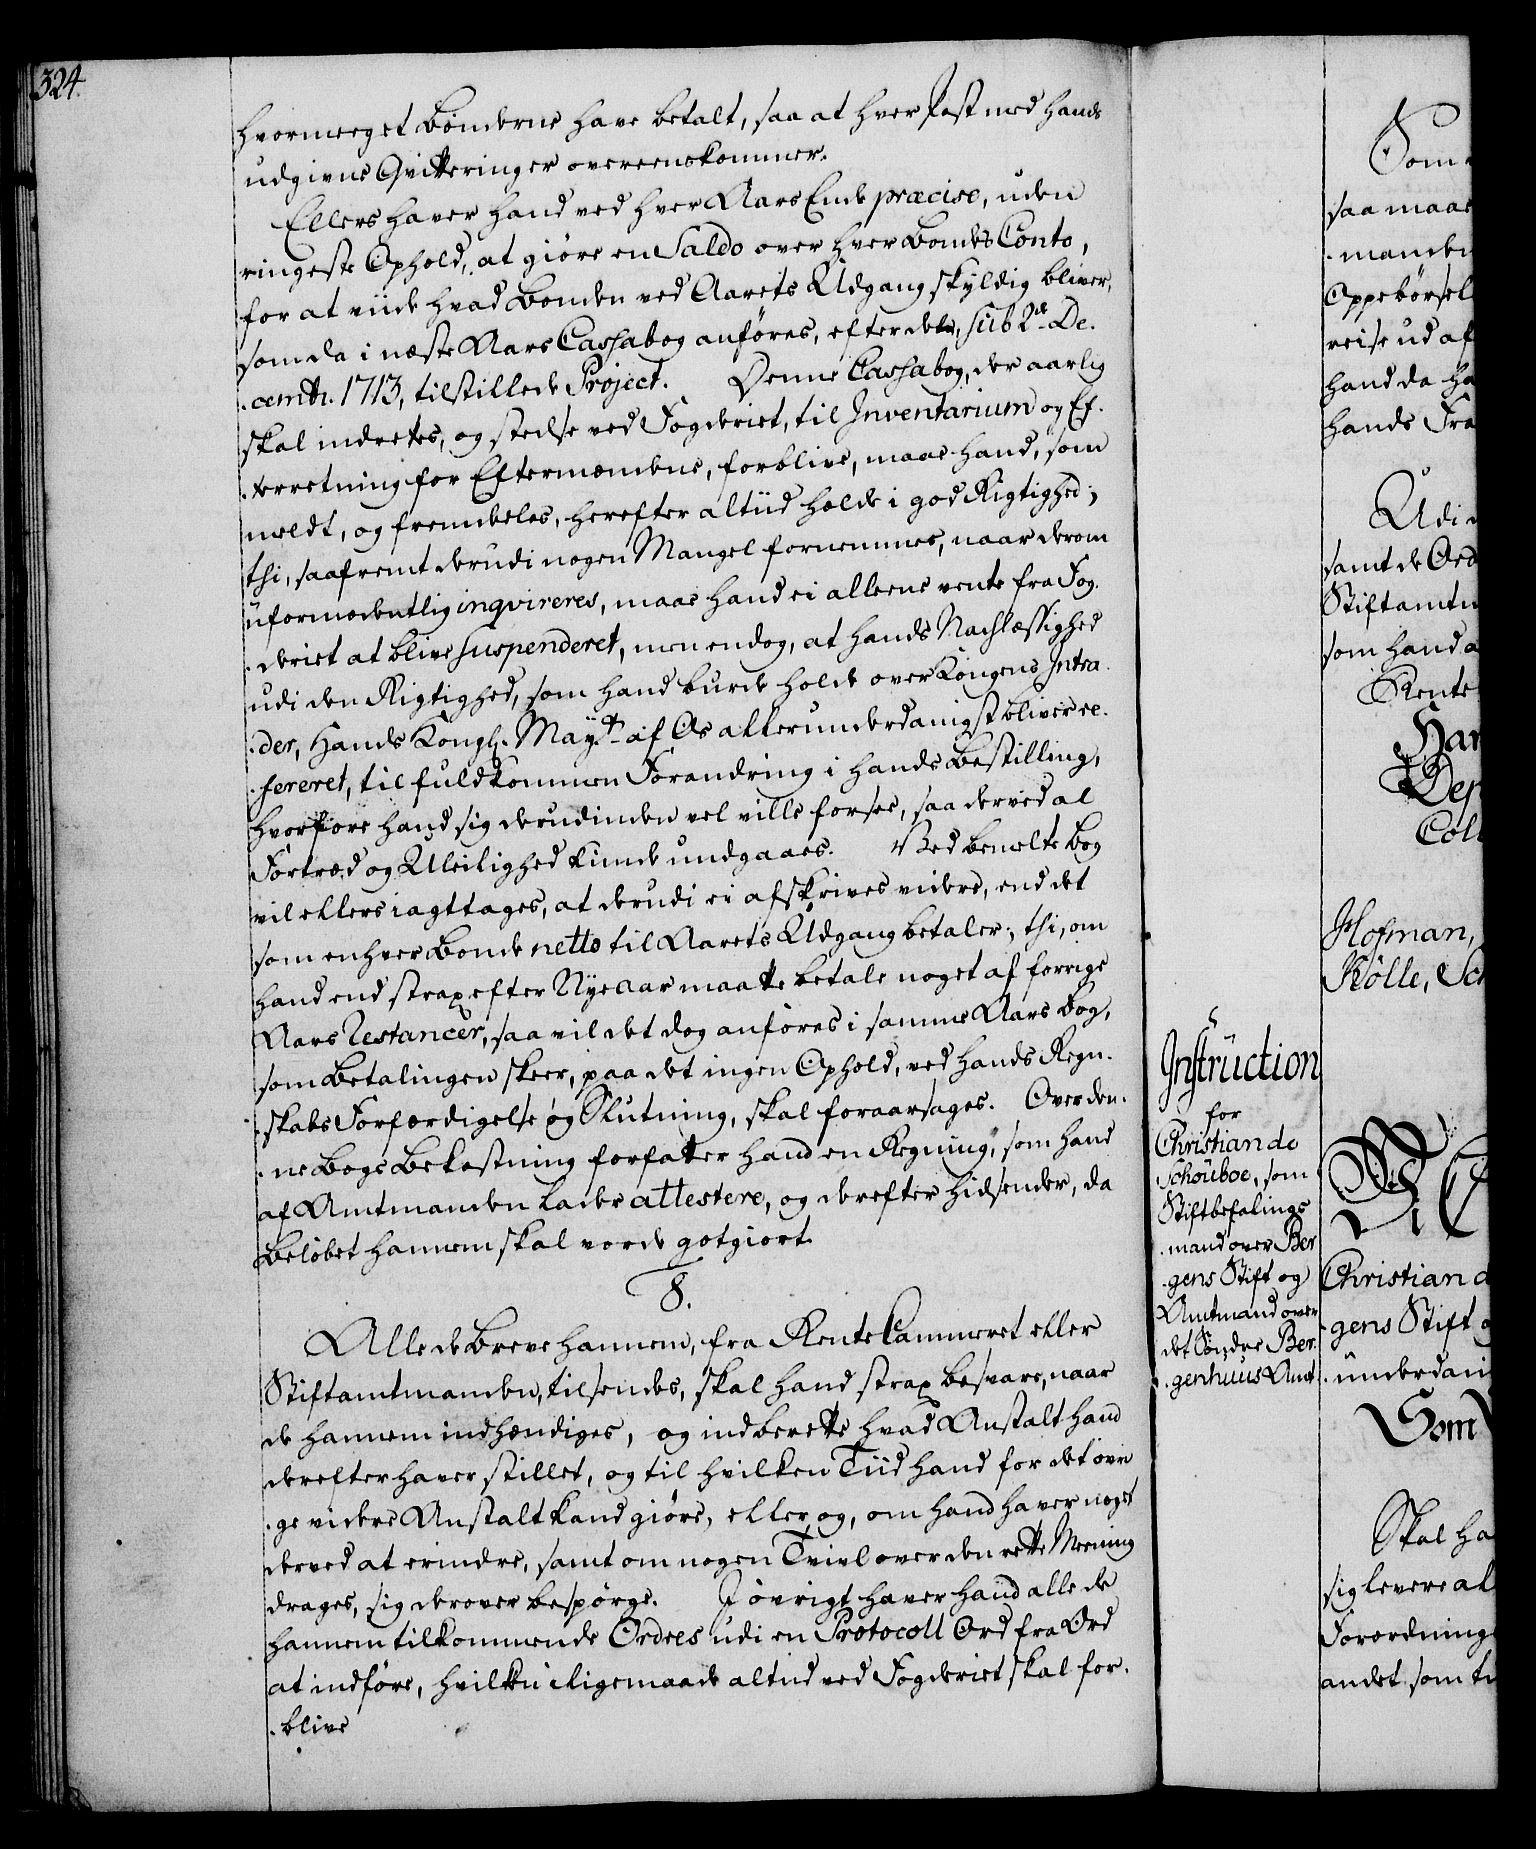 324.
hvormeeget Bönderne have betalt, saa at hver Post med hands
udgivne Qvitteringer overeenskommer.
Ellers haver hand ved hver Aars Ende præcise, uden
ringeste Ophold, at giöre en Saldo over hver Bondes Conto,
for at viide hvad Bonden ved Aarets Udgang skyldig bliver,
som da i næste Aars Cassabog anföres, efter det, sub 2de De-
-cembr. 1713, tilstillede Project. Denne Cassabog, der aarlig
skal indrettes, og stedse ved Fogderiet, til Inventarium og Ef-
-terretning for Eftermændene, forblive, maae hand, som
meldt, og fremdeeles, herefter altiid holde i god Rigtighed;
thi, saafremt derudi nogen Mangel fornemmes, naar derom
uformodentlig inqvireres, maae hand ei alleene vente fra Fog-
-deriet at blive suspenderet, men endog, at hands Nachlæssighed
udi den Rigtighed, som hand burde holde over Kongens Intra-
-der, Hands Kongl. Mayt. af Os allerunderdanigst bliver re-
-fereret, til fuldkommen Forandring i hands Bestilling,
hvorfore hand sig derudinden vel ville forsee, saa derved al
Fortræd og Uleilighed kunde undgaaes. Ved bemelte Bog
vil ellers iagttages, at derudi ei afskrives videre, end det
som enhver Bonde netto til Aarets Udgang betaler; thi, om
hand end strax efter Nyeaar maatte betale noget af forrige
Aars Restancer, saa vil det dog anföres i samme Aars Bog,
som Betalingen skeer, paa det ingen Ophold, ved hands Regn-
-skabs Forfærdigelse og Slutning, skal foraarsages. Over den-
-ne Bogs Bekostning forfatter hand en Regning, som hand
af Amtmanden lader attestere, og derefter hidsender, da
Belöbet hannem skal vorde gotgiort.
8.
Alle de Breve hannem, fra RenteCammeret eller
Stiftamtmanden, tilsendes, skal hand strax besvare, naar
de hannem indhændiges, og indberette hvad Anstalt hand
derefter haver stillet, og til hvilken Tiid hand for det övri
-ge videre Anstalt kand giöre, eller og, om hand haver noget
derved at erindre, samt om nogen Tvivl over den rette Meening
drages, sig derover bespörge. I övrigt haver hand alle de
hannem tilkommende Ordres udi en Protocoll Ord fra Ord
at indföre, hvilken i ligemaade altiid ved Fogderiet skal for-
-blive
Instruction
for
Christian de
Schouboe, som
Stiftbefalings
-mand over Ber
-gens Stift og
Amtmand over
det Söndre Ber-
-genhuus Amt.
Som
saa maae
-manden
Oppebörsel
reise ud af
hand da ha
hands Fra
Udi
samt de Ord
Stiftamtm
som hand a
Rente
Han
Dep
Coll
Hofman,
Kölle, Sch
Christian d
-gens Stift o
-underdani
Som
Skal ha
sig levere al
Forordning
andet som